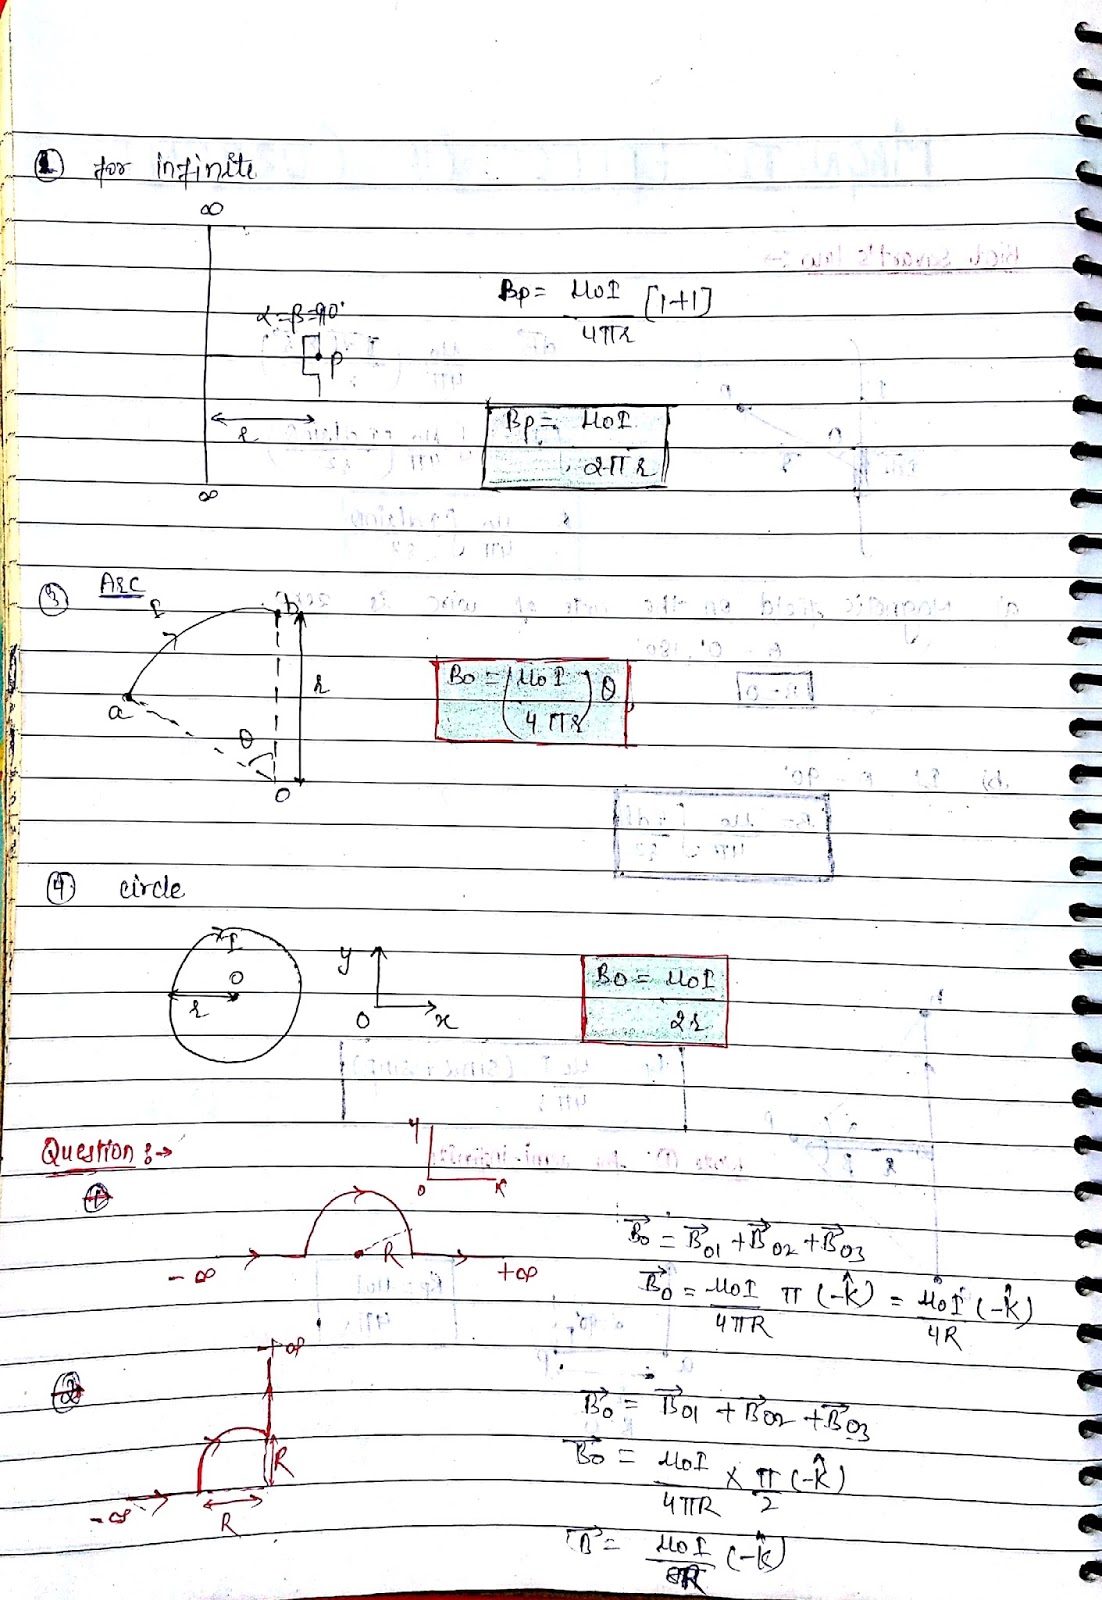 ② for infinite
∞
α=β=90°
p
r
∞
Bp = μ0I/4πr [1+1]
Bp = μ0I/2πr
③ Arc
I
b
a
r
θ
O
B0 = (μ0I/4πr) θ
④ circle
I
O
r
y
O x
B0 = μ0I/2r
Question :→
y
O x
①
-∞ R +∞
B⃗0 = B⃗01 + B⃗02 + B⃗03
B⃗0 = μ0I/4πR π (-k̂) = μ0I/4R (-k̂)
②
+∞
R
-∞ R
B⃗0 = B⃗01 + B⃗02 + B⃗03
B⃗0 = μ0I/4πR × π/2 (-k̂)
B⃗ = μ0I/8R (-k̂)